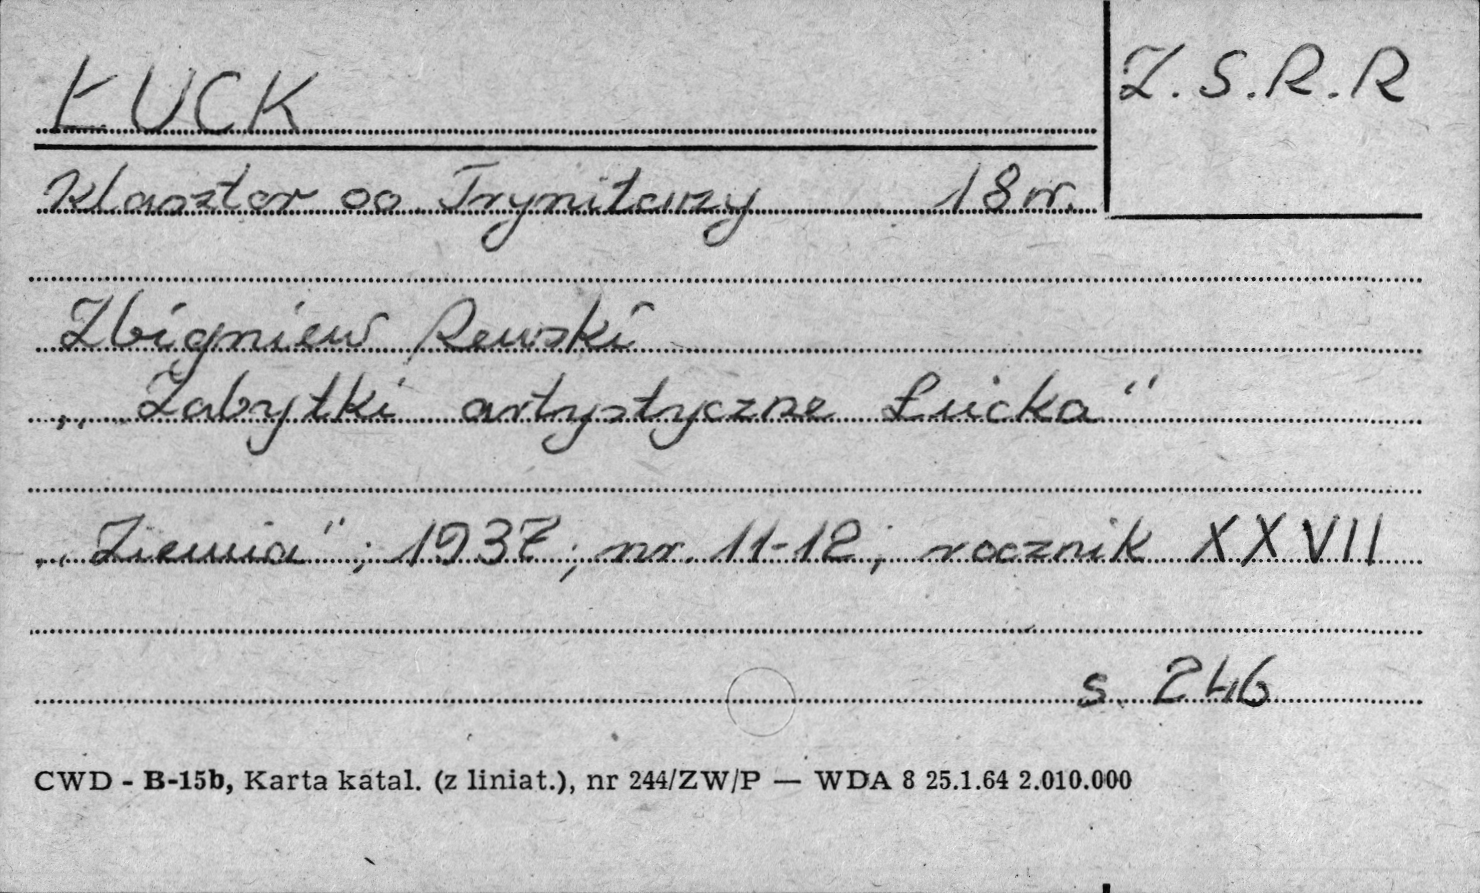 ŁUCK
Z.S.R.R
Klasztor oo. Trynitarzy 18 w.
Zbigniew Rewski
„Zabytki artystyczne Łucka"
„Ziemia"; 1937; nr. 11-12; rocznik XXVII
s. 246
CWD - B-15b, Karta katal. (z liniat.), nr 244/ZW/P — WDA 8 25.1.64 2.010.000